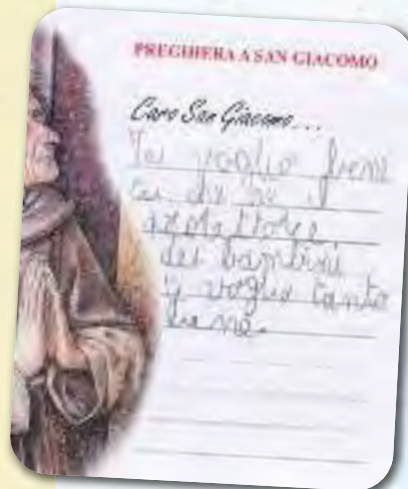 PREGHIERA A SAN GIACOMO
Caro San Giacomo...
Ti voglio bene
dei bambini
ti voglio tanto
bene.